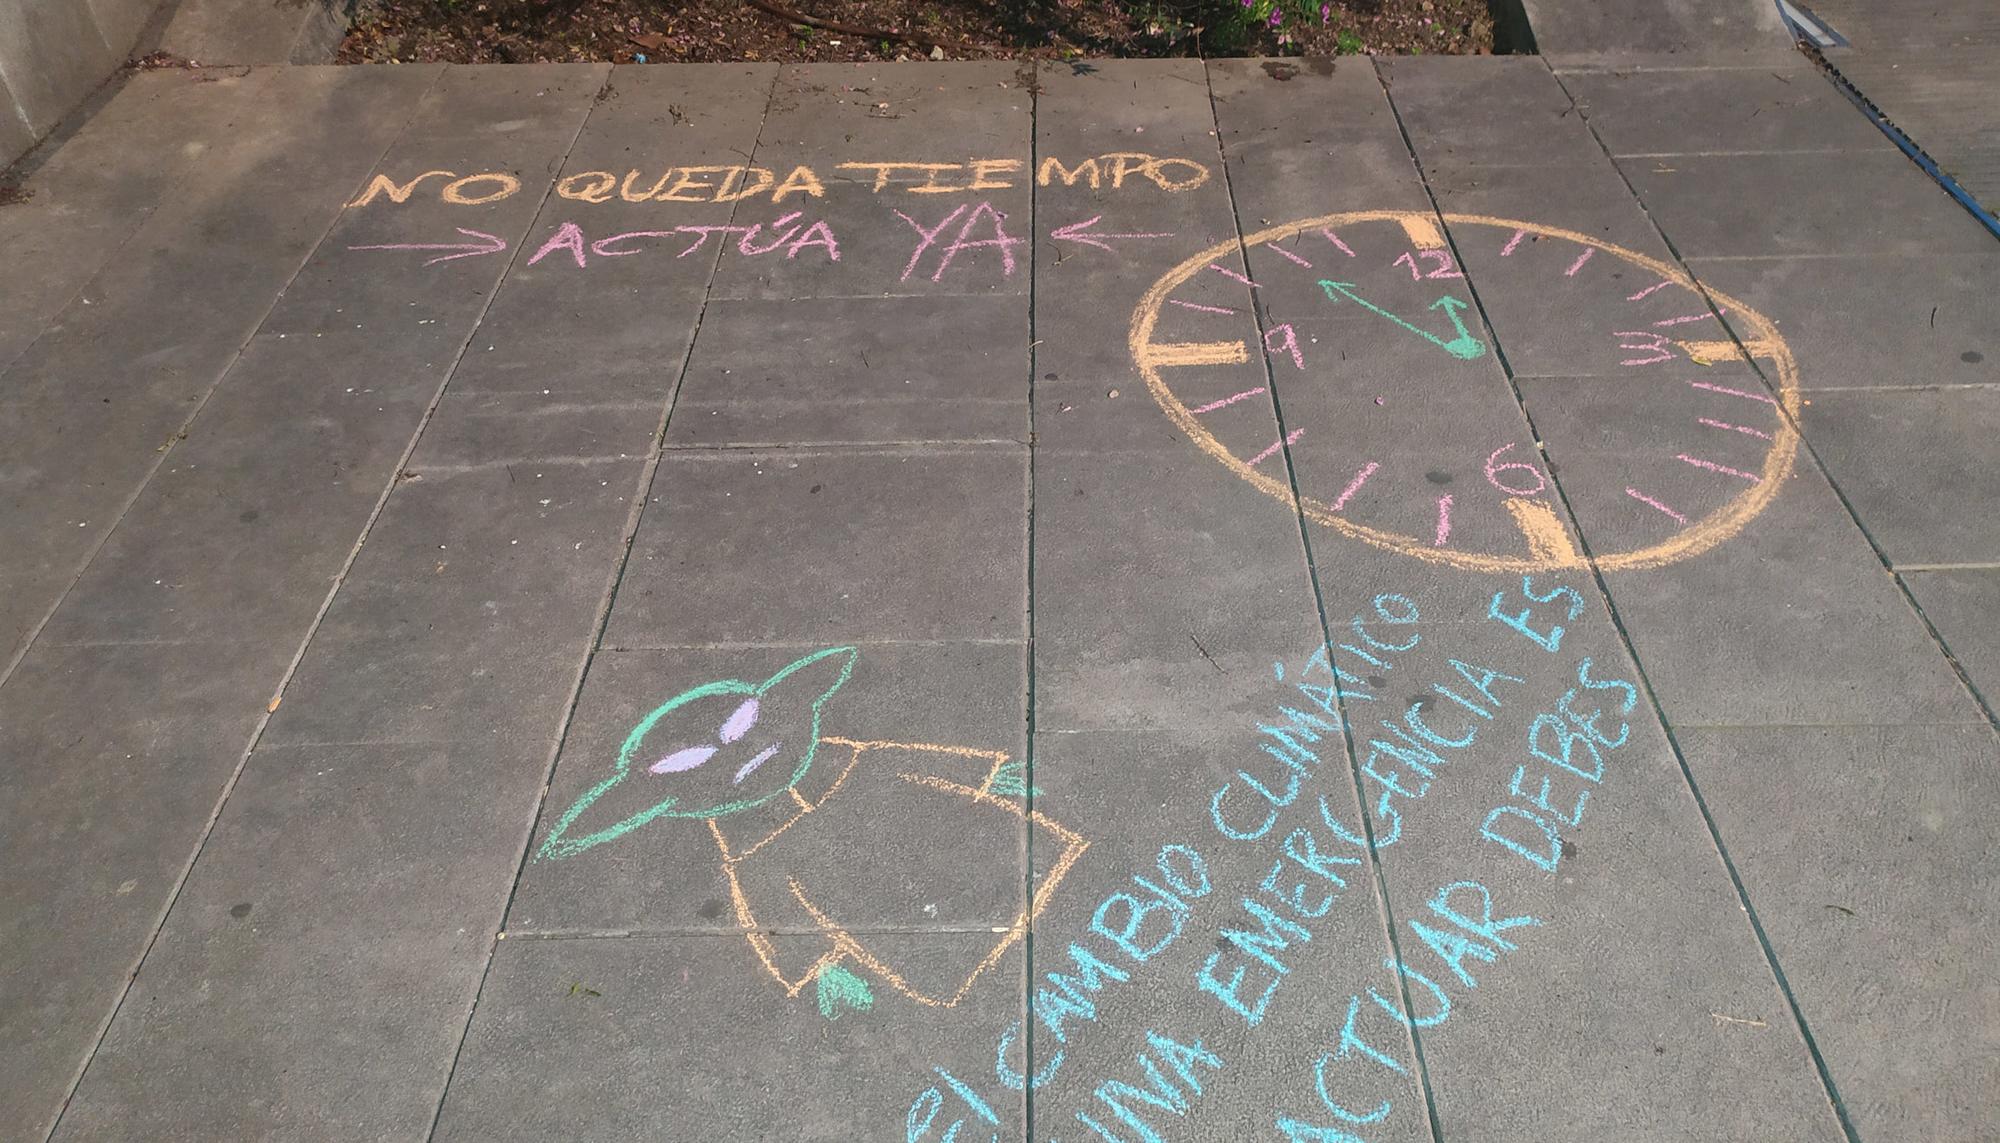 NO QUEDA TIEMPO
→ ACTÚA YA ←
12
9
3
6
El CAMBIO CLIMÁTICO
UNA EMERGENCIA ES
ACTUAR DEBES